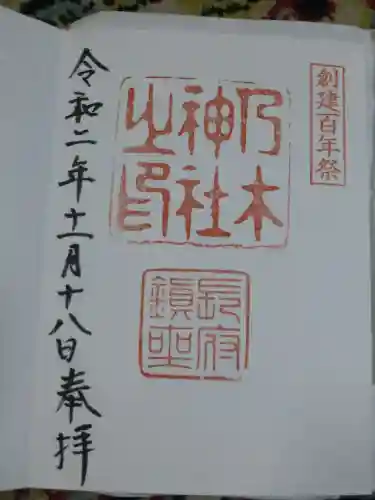 創建百年祭
乃木
神社
之印
長府
鎮座
令和二年十一月十八日奉拝